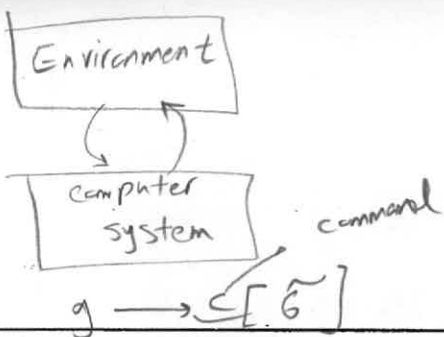 Environment
computer
system
command
g → C[σ̃]